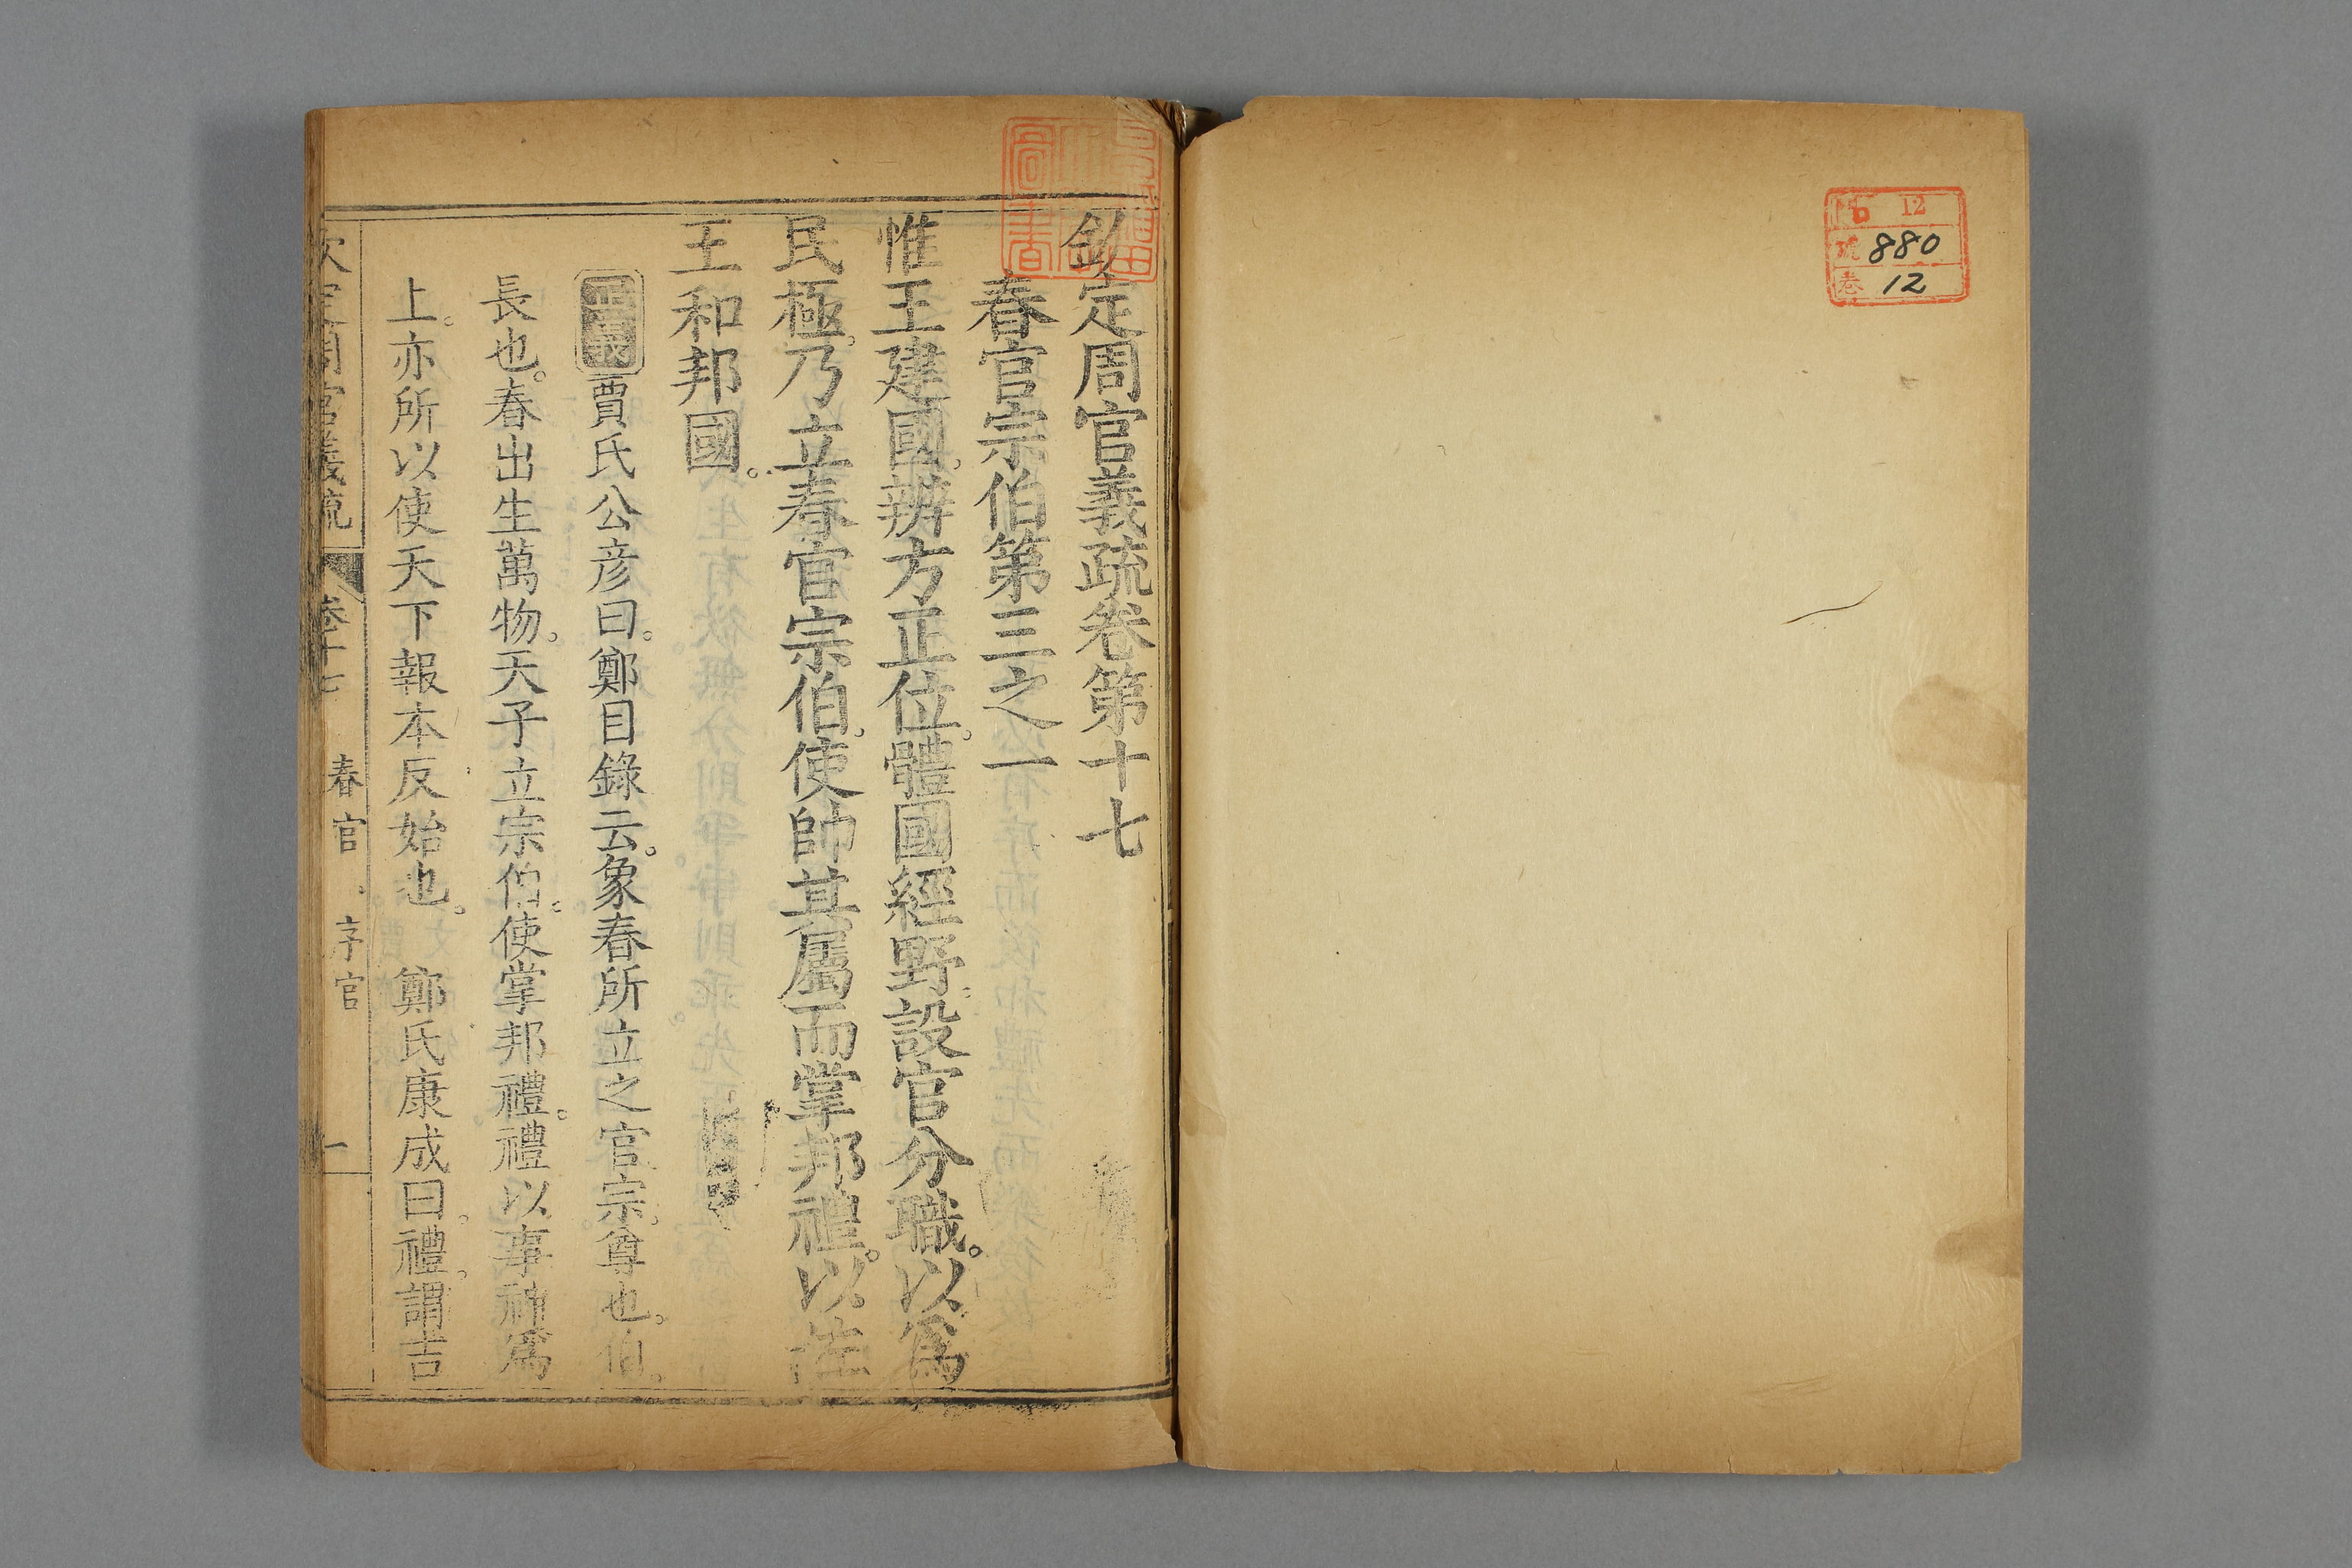 12
號 880
卷 12
欽定周官義疏卷第十七
春官宗伯第三之一
惟王建國。辨方正位。體國經野。設官分職。以爲
民極。乃立春官宗伯。使帥其屬而掌邦禮。以佐
王和邦國。
正義賈氏公彦曰。鄭目錄云。象春所立之官。宗。尊也。伯。
長也。春出生萬物。天子立宗伯。使掌邦禮。禮以事神爲
上。亦所以使天下報本反始也。 鄭氏康成曰。禮。謂吉
欽定周官義疏 卷十七 春官 序官 一